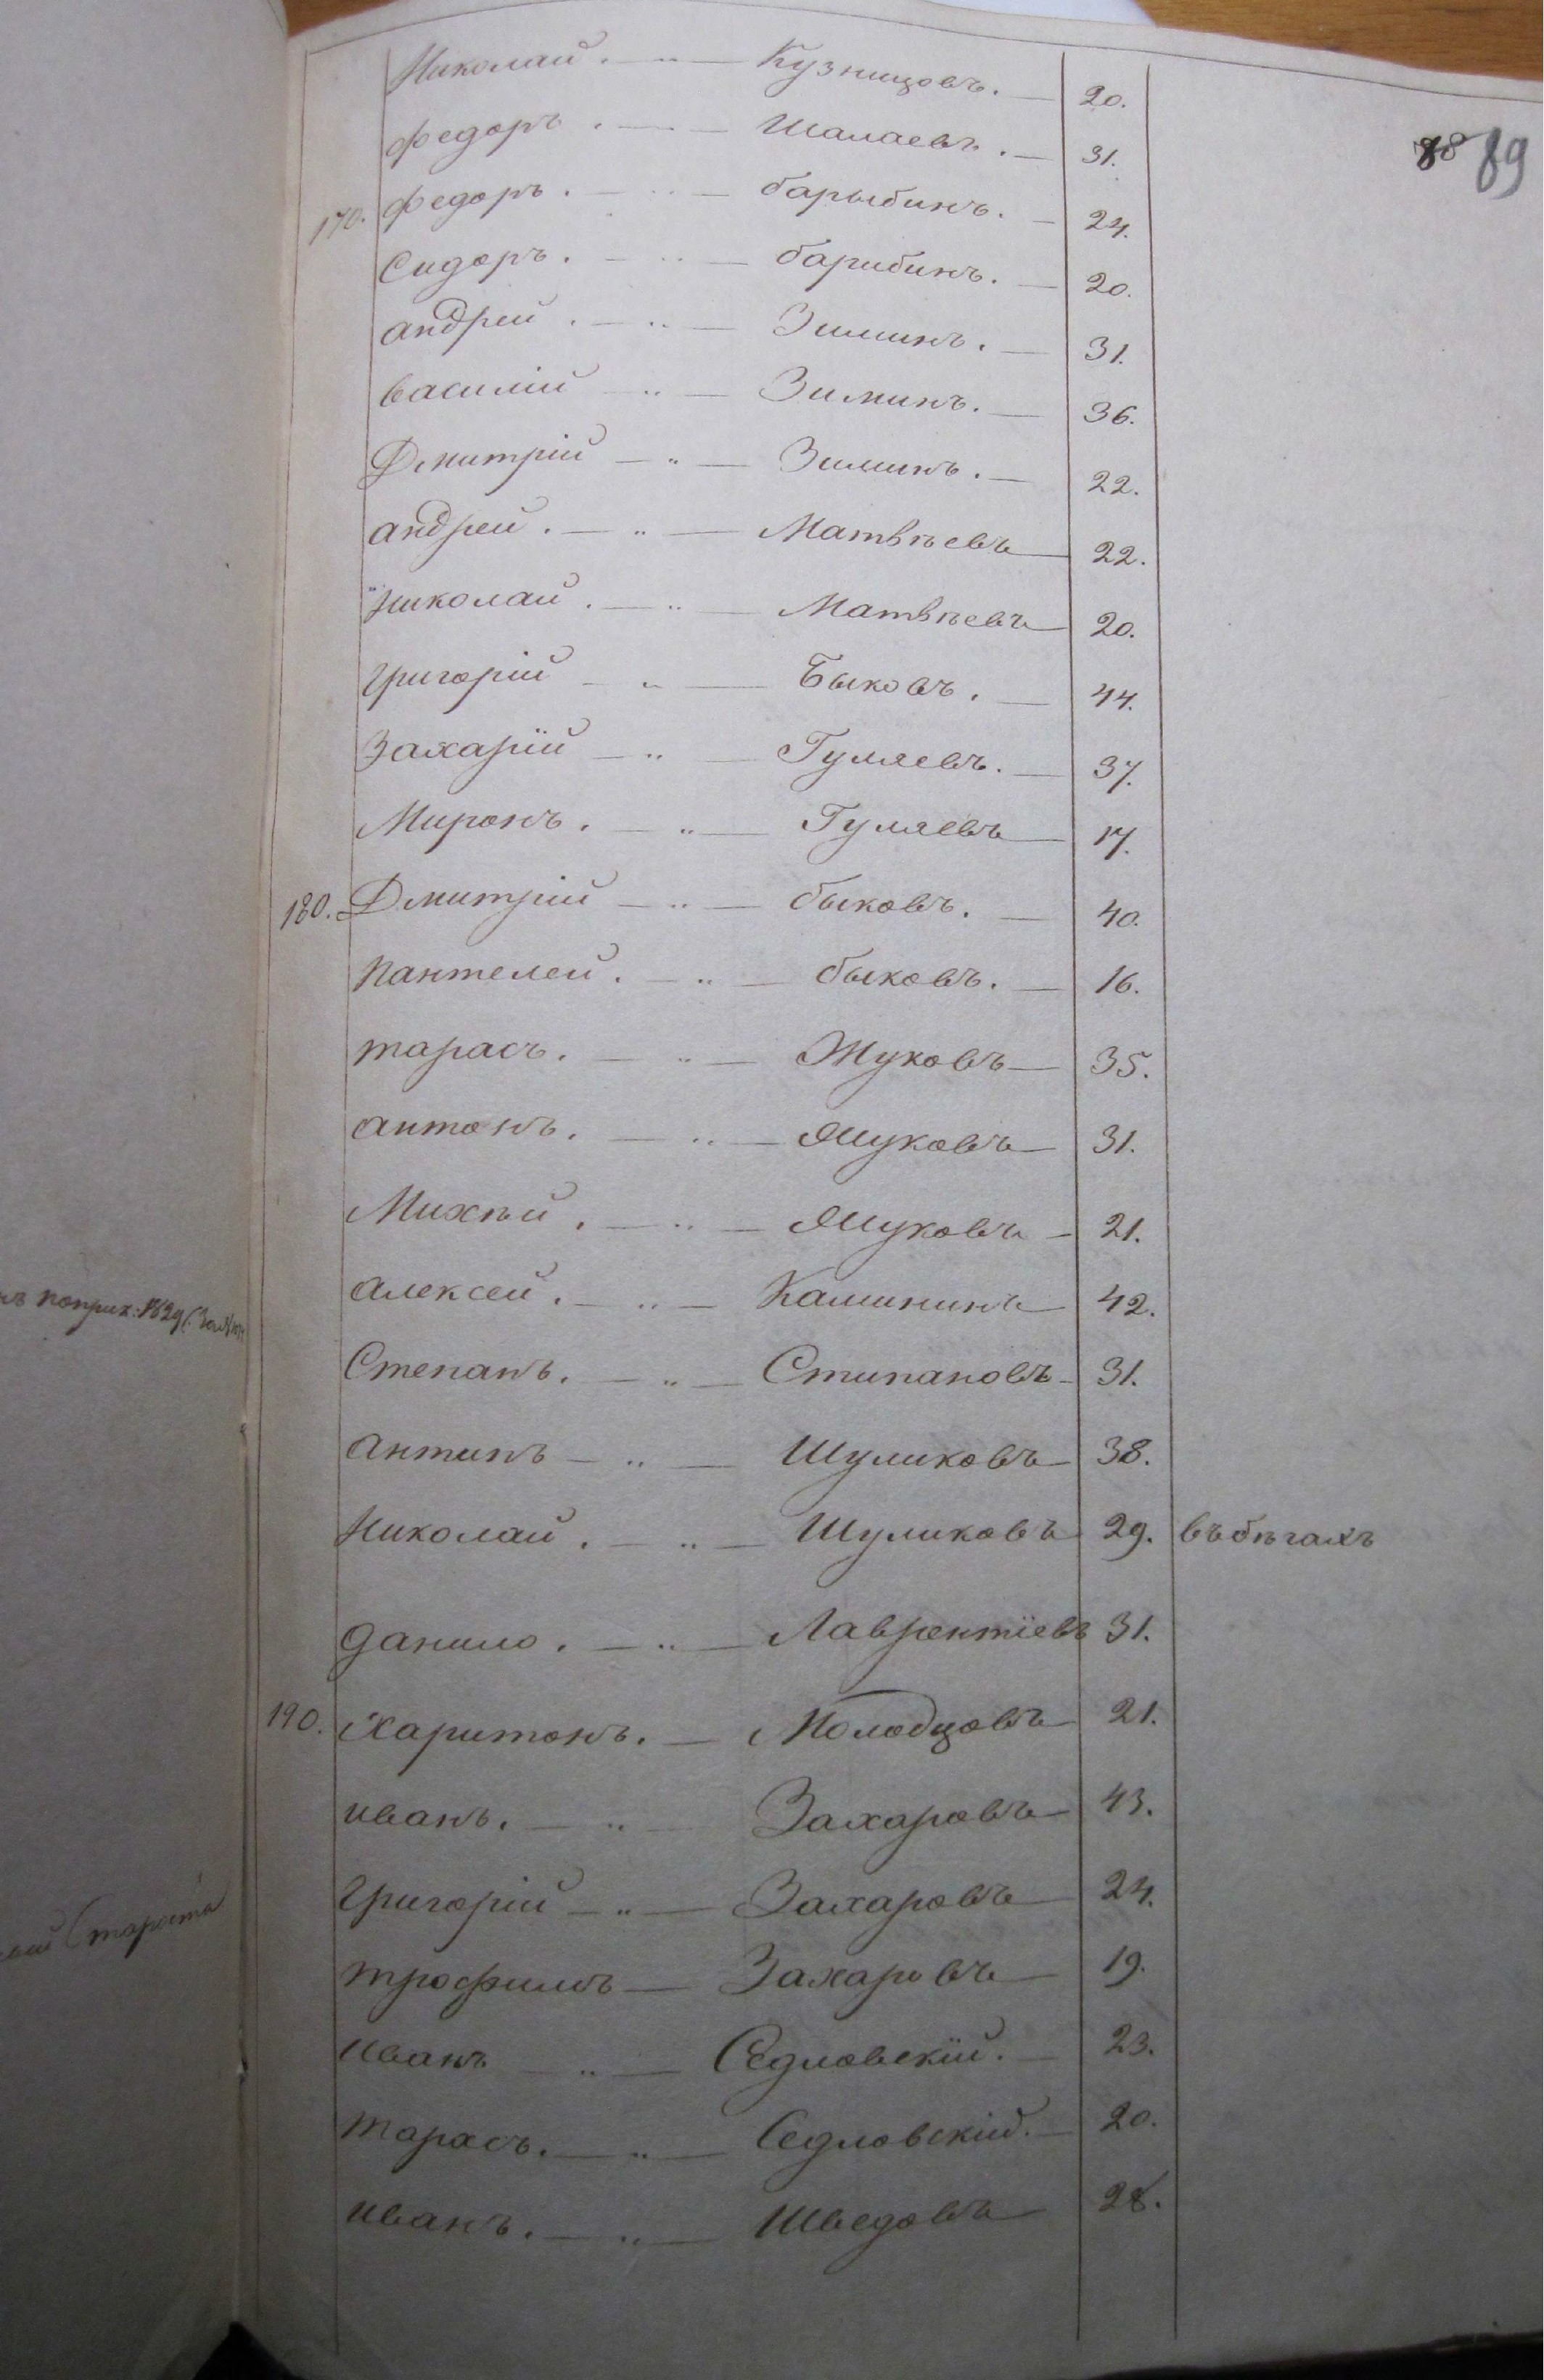 88 89
Николай. — „ — Кузницовъ. — 20.
Федоръ. — — Шалаевъ. — 31.
170. Федоръ. — „ — барыбинъ. — 24.
Сидоръ. — „ — барибинъ. — 20.
андрей. — „ — Зиминъ. — 31.
василій — „ — Зиминъ. — 36.
Дмитрій — „ — Зиминъ. — 22.
андрей. — „ — Матвѣевъ — 22.
Николай. — „ — Матвѣевъ — 20.
григорій — „ — Быковъ. — 44.
Захарій — „ — Гуляевъ. — 37.
Миронъ. — „ — Гуляевъ — 17.
180. Дмитрій — „ — быковъ. — 40.
пантелей. — „ — быковъ. — 16.
тарасъ. — „ — Жуковъ — 35.
антонъ. — „ — Жуковъ — 31.
Михѣй. — „ — Жуковъ — 21.
алексей. — „ — Калининъ — 42.
Степанъ. — „ — Стипановъ — 31.
антипъ — „ — Шуликовъ — 38.
Николай. — „ — Шуликовъ 29. въ бѣгахъ
данило. — „ — Лаврентіевъ 31.
190. Харитонъ. — Молодцовъ — 21.
иванъ. — „ — Захаровъ — 43.
григорій — „ — Захаровъ — 24.
трофимъ — Захаровъ — 19.
иванъ — „ — Седловскій. — 23.
тарасъ. — „ — Седловскій. — 20.
иванъ. — „ — Шведовъ — 28.
староста